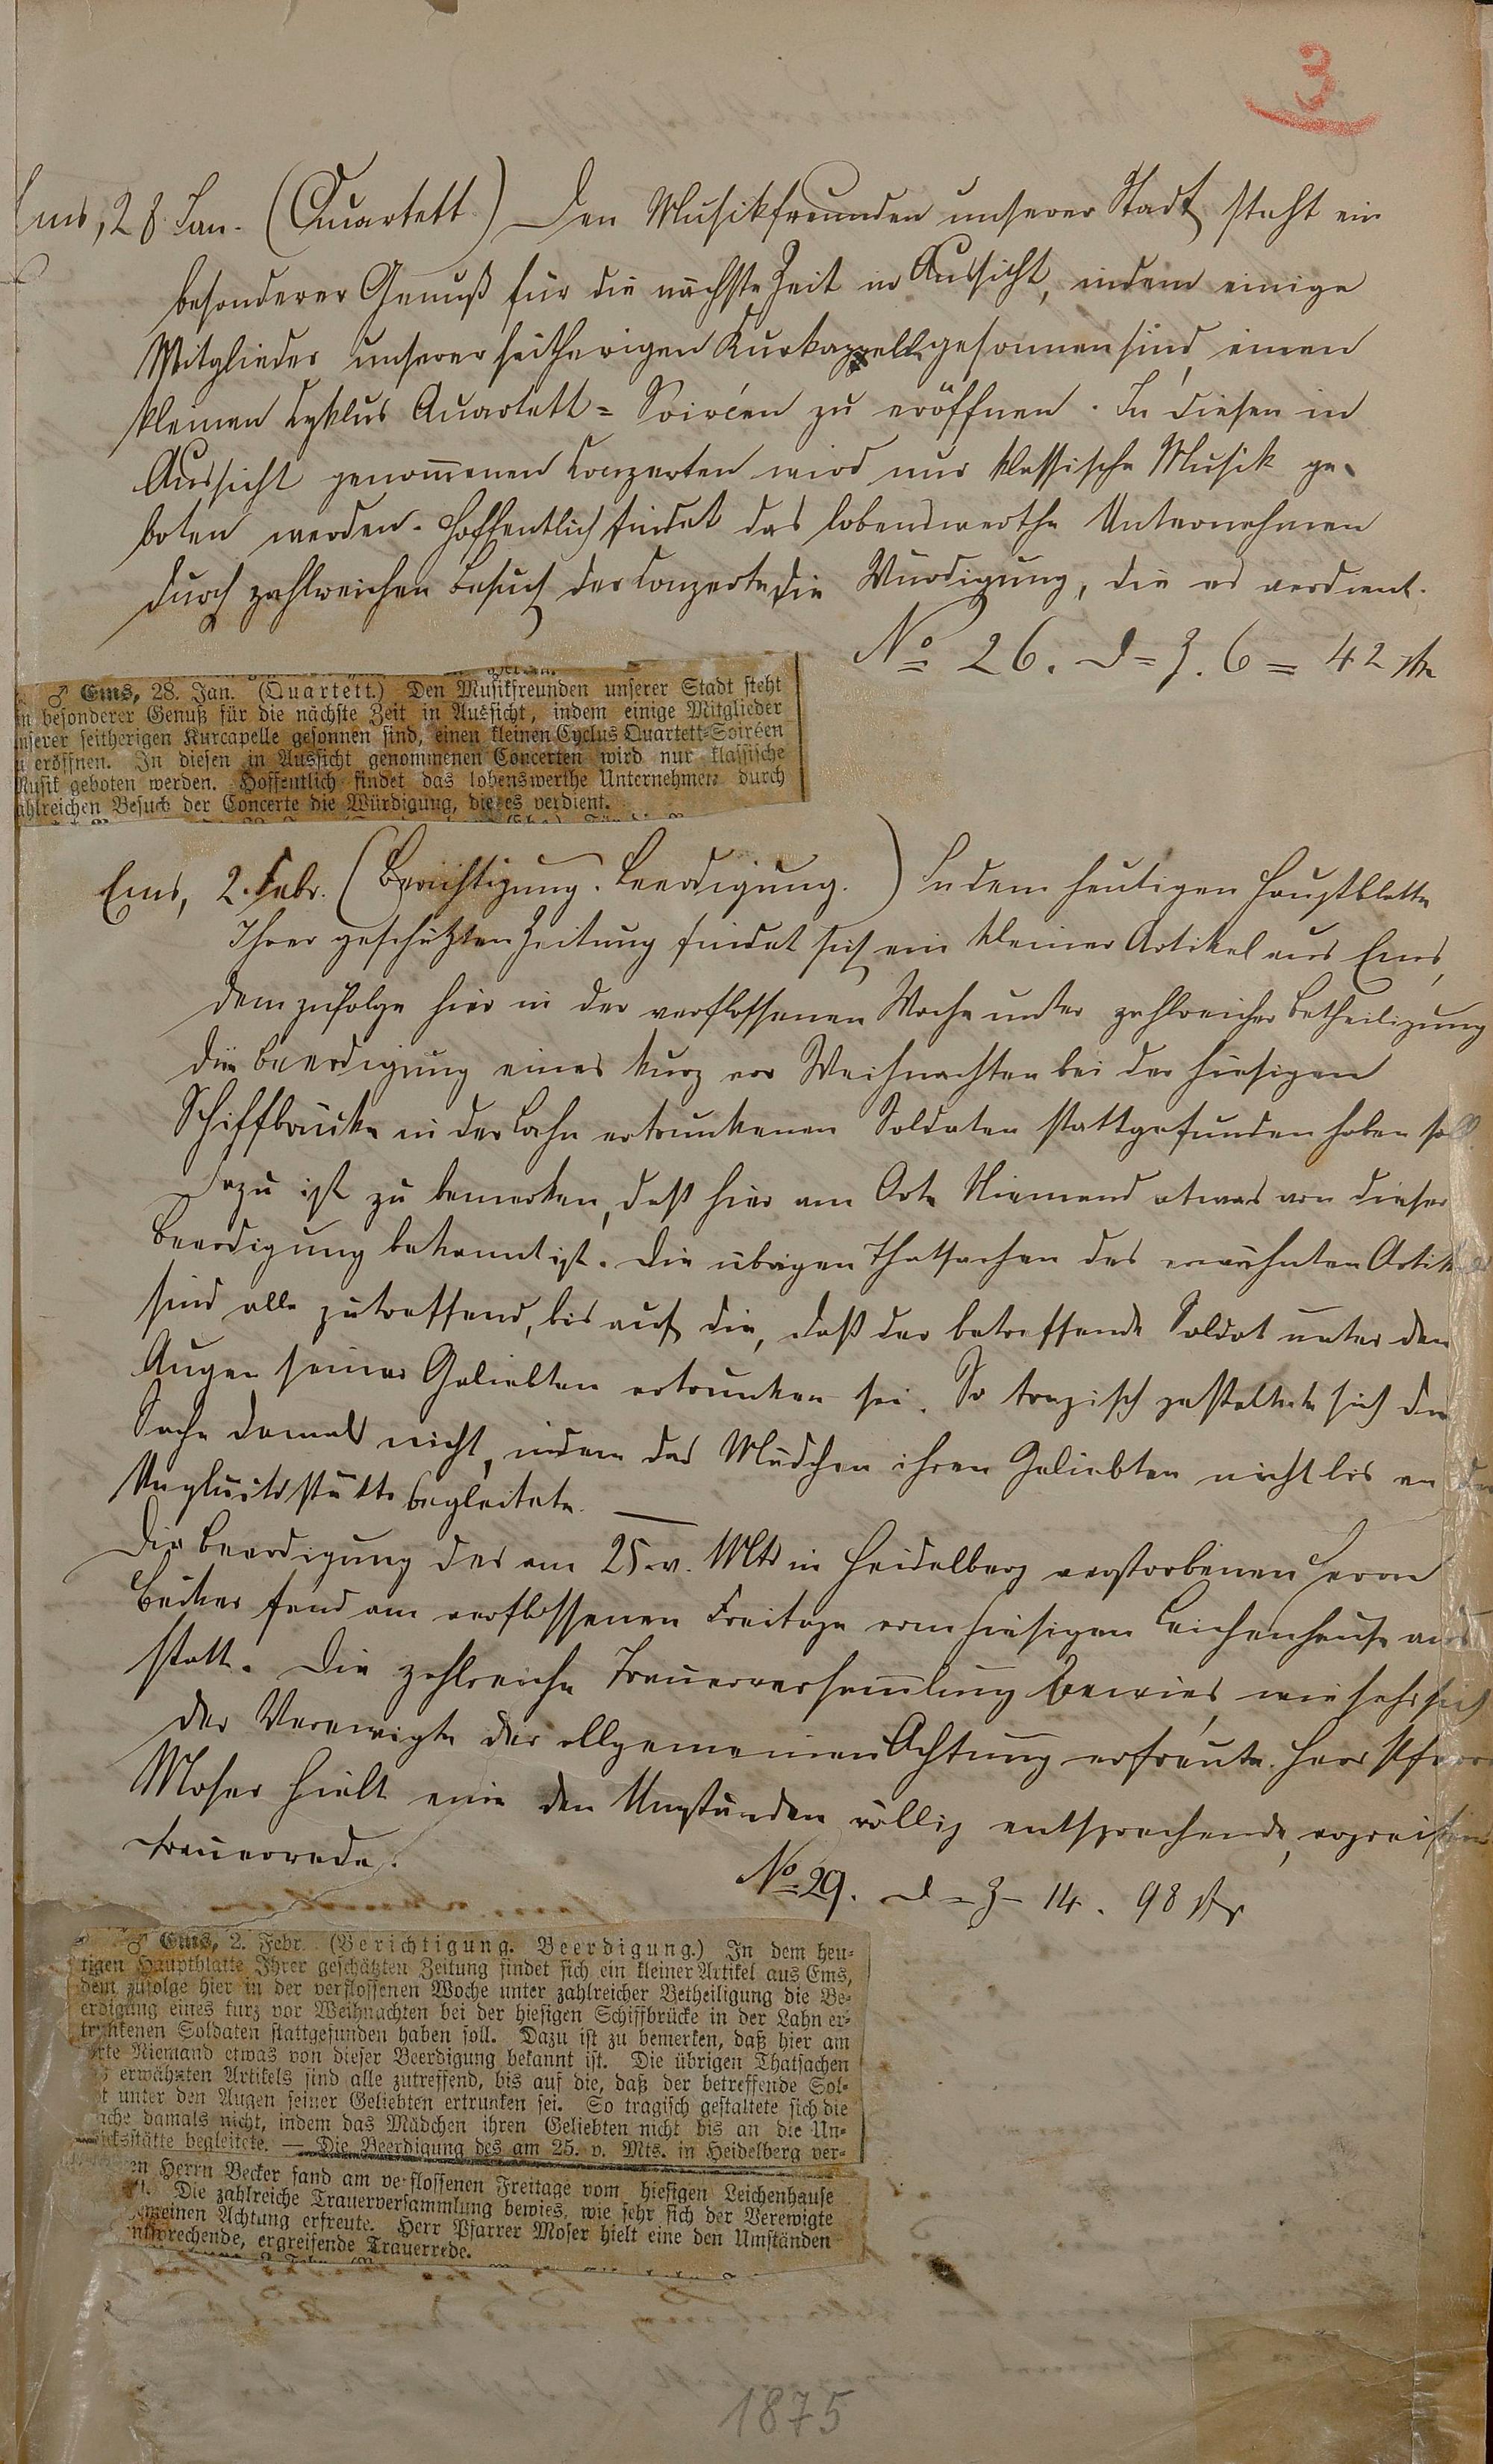 3
Ems, 28. Jan. (Quartett.) Den Musikfreunden unserer Stadt steht ein
besonderer Genuß für die nächste Zeit in Aussicht, indem einige
Mitglieder unserer seitherigen Kurkapelle gesonnen sind, einen
kleinen Cyklus Quartett=Soiréen zu eröffnen. In diesen in
Aussicht genom̅enen Conzerten wird nur klassische Musik ge-
boten werden. Hoffentlich findet das lobenswerthe Unternehmen
durch zahlreichen Besuch der Conzerte die Würdigung, die es verdient.
No 26. D=Z. 6 = 42
♂ Ems, 28. Jan. (Quartett.) Den Musikfreunden unserer Stadt steht
in besonderer Genuß für die nächste Zeit in Aussicht, indem einige Mitglieder
nserer seitherigen Kurcapelle gesonnen sind, einen kleinen Cyclus Quartett=Soiréen
u eröffnen. In diesen in Aussicht genommenen Concerten wird nur klassische
Musik geboten werden. Hoffentlich findet das lobenswerthe Unternehmen durch
ahlreichen Besuch der Concerte die Würdigung, die es verdient.
Ems, 2. Febr. (Berichtigung. Beerdigung.) In dem heutigen Hauptblatte
Ihrer geschätzten Zeitung findet sich ein kleiner Artikel aus Ems,
dem zufolge hier in der verflossenen Woche unter zahlreicher Betheiligung
die Beerdigung eines kurz vor Weihnachten bei der hiesigen
Schiffbrücke in der Lahn ertrunkenen Soldaten stattgefunden haben soll.
Dazu ist zu bemerken, daß hier am Orte Niemand etwas von dieser
Beerdigung bekannt ist. Die übrigen Thatsachen des erwähnten Artikels
sind alle zutreffend, bis auf die, daß der betreffende Soldat unter den
Augen seiner Geliebten ertrunken sei. So tragisch gestaltete sich die
Sache damals nicht, indem das Mädchen ihren Geliebten nicht bis an die
Unglücksstätte begleitete. —
Die Beerdigung des am 25. v. Mts in Heidelberg verstorbenen Herrn
Becker fand am verflossenen Freitage vom hiesigen Leichenhause aus
statt. Die zahlreiche Trauerversam̅lung bewies, wie sehr sich
der Verewigte der allgemeinen Achtung erfreute. Herr Pfarrer
Moser hielt eine den Umständen völlig entsprechende, ergreifende
Trauerrede.
No 29. D=Z= 14. 98
♂ Ems, 2. Febr. (Berichtigung. Beerdigung.) In dem heu=
tigen Hauptblatte Ihrer geschätzten Zeitung findet sich ein kleiner Artikel aus Ems,
dem zufolge hier in der verflossenen Woche unter zahlreicher Betheiligung die Be=
erdigung eines kurz vor Weihnachten bei der hiesigen Schiffbrücke in der Lahn er=
trunkenen Soldaten stattgefunden haben soll. Dazu ist zu bemerken, daß hier am
rte Niemand etwas von dieser Beerdigung bekannt ist. Die übrigen Thatsachen
s erwähnten Artikels sind alle zutreffend, bis auf die, daß der betreffende Sol=
t unter den Augen seiner Geliebten ertrunken sei. So tragisch gestaltete sich die
ache damals nicht, indem das Mädchen ihren Geliebten nicht bis an die Un=
icksstätte begleitete. — Die Beerdigung des am 25. v. Mts. in Heidelberg ver=
en Herrn Becker fand am verflossenen Freitage vom hiesigen Leichenhause
t. Die zahlreiche Trauerversammlung bewies, wie sehr sich der Verewigte
meinen Achtung erfreute. Herr Pfarrer Moser hielt eine den Umständen
ntsprechende, ergreifende Trauerrede.
1875